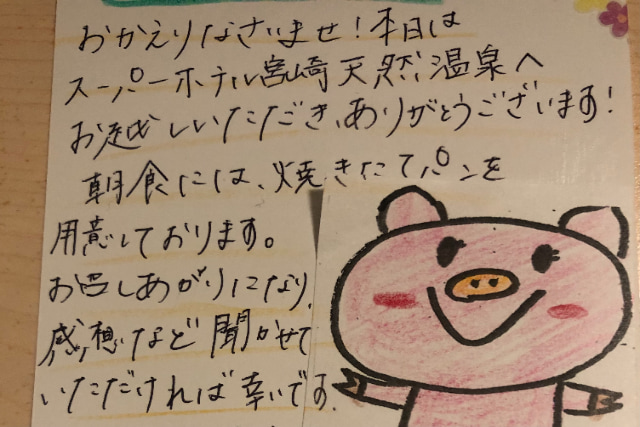 おかえりなさいませ！本日は
スーパーホテル宮崎天然温泉へ
お越しいただき、ありがとうございます！
朝食には、焼きたてパンを
用意しております。
お召しあがりになり、
感想など聞かせて
いただければ幸いです。